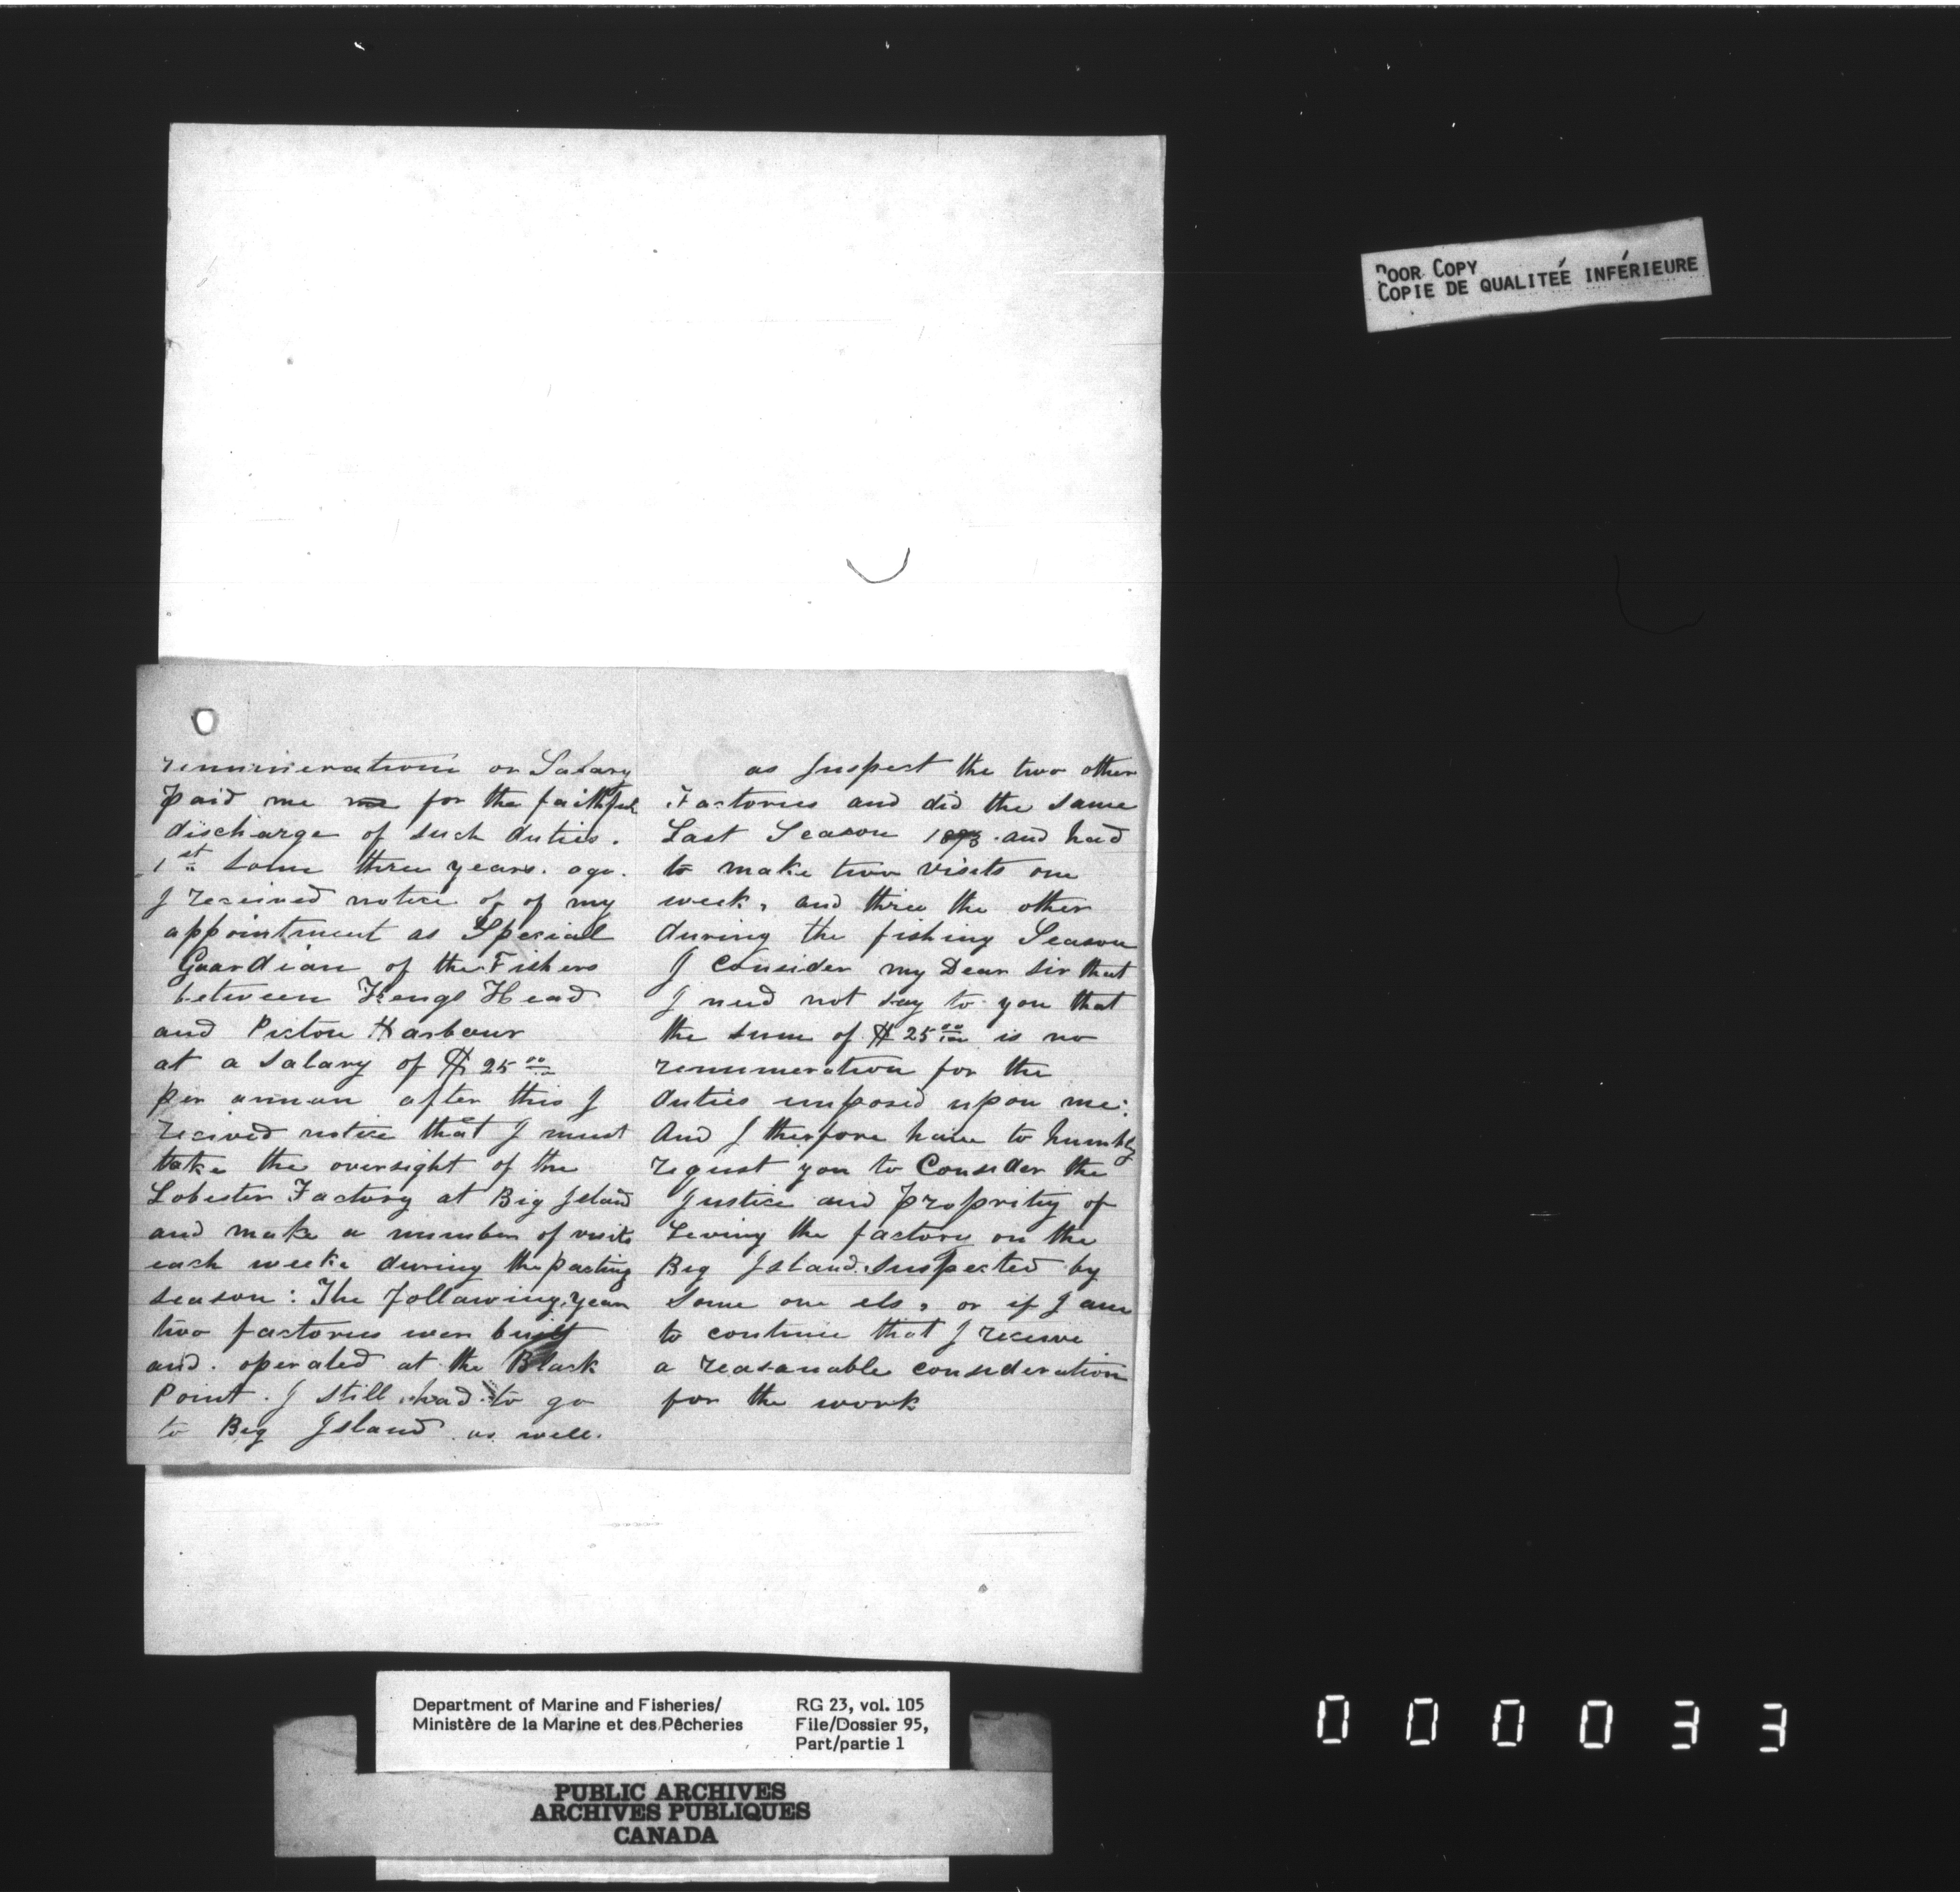 remunerationi or Salary
paid me me for the faithful
discharge of such duties.
1st some three years. ago.
I received notice of of my
appointment as Special
Guardian of the Fishers
between Kengs Head
and Pictou Harbour
at a salary of $ 25 00
per annun after this I
recived notice that I must
take the oversight of the
Lobester Factory at Big Island
and make a number of visits
each weeke during the packing
season: The following, year
two factories wer built
and. operated at the Black
Point. I still had to go
to Big Island as well.
as Inspect the two other
Factories and did the same
Last Season 1893. and had
to make two visits one
week, and three the other
during the fishing Season
I Consider my Dear sir that
I need not say to you that
the sum of $ 25 00 is no
renumeration for the
duties imposed upon me:
And I therfore have to humbly
request you to Consider the
Justice and propriity of
Leving the factory on the
Big Island. Inspected by
some one els, or if I am
to continue that I receive
a reasanable consideration
for the work
POOR COPY
COPIE DE QUALITÉE INFÉRIEURE
Department of Marine and Fisheries/
Ministère de la Marine et des Pêcheries
RG 23, vol. 105
File/Dossier 95,
Part/partie 1
PUBLIC ARCHIVES
ARCHIVES PUBLIQUES
CANADA
000033